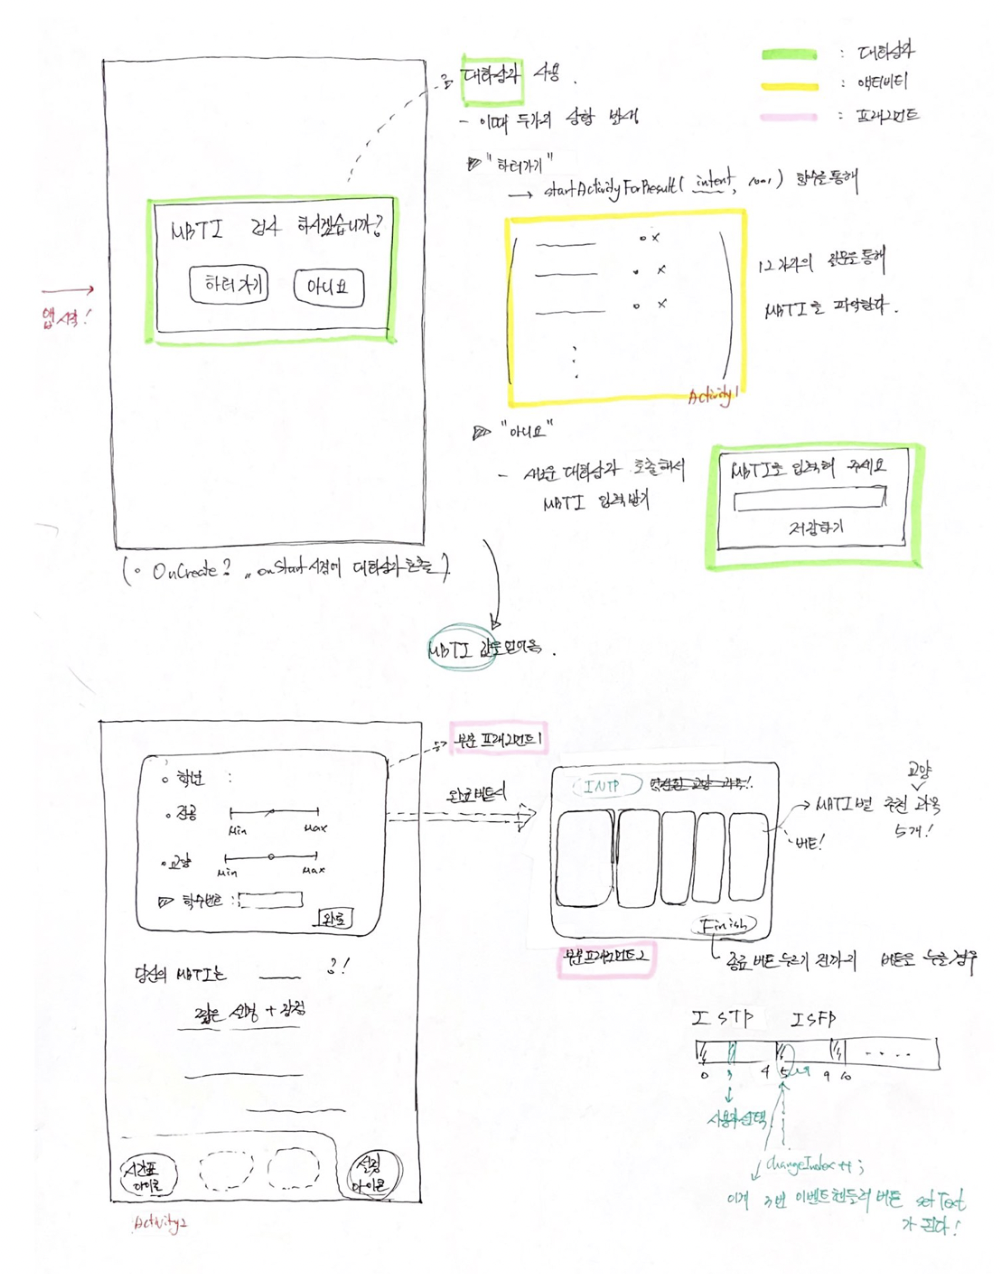 : 대화상자
: 액티비티
: 프래그먼트
대화상자 사용.
- 이때 두가지 상황 발생
"하러가기"
→ startActivityForResult( intent, ) 함수를 통해
o x
o x
o x
Activity1
12가지의 질문을 통해
MBTI를 파악한다.
MBTI 검사 하시겠습니까?
하러가기
아니요
앱 시작!
"아니요"
- 새로운 대화상자 호출해서
MBTI 입력받기
MBTI를 입력해 주세요
저장하기
(· OnCreate? , onStart 시점에 대화상자 호출)
MBTI
부분 프래그먼트1
학년 :
전공
Min Max
교양
Min Max
학수번호 :
완료
완료버튼시
INTP 교양 과목!
Finish
부분프래그먼트2
교양
MBTI별 추천 과목
5개!
버튼!
종료 버튼 누르기 전까지 버튼을 누를 경우
당신의 MBTI는 ?!
짧은 설명 +
시간표
아이콘
설정
아이콘
Activity2
ISTP ISFP
0 3 4 5 9 10
사용자 선택
changeIndex++;
이게 3번 이벤트핸들러 버튼 setText
가 된다!